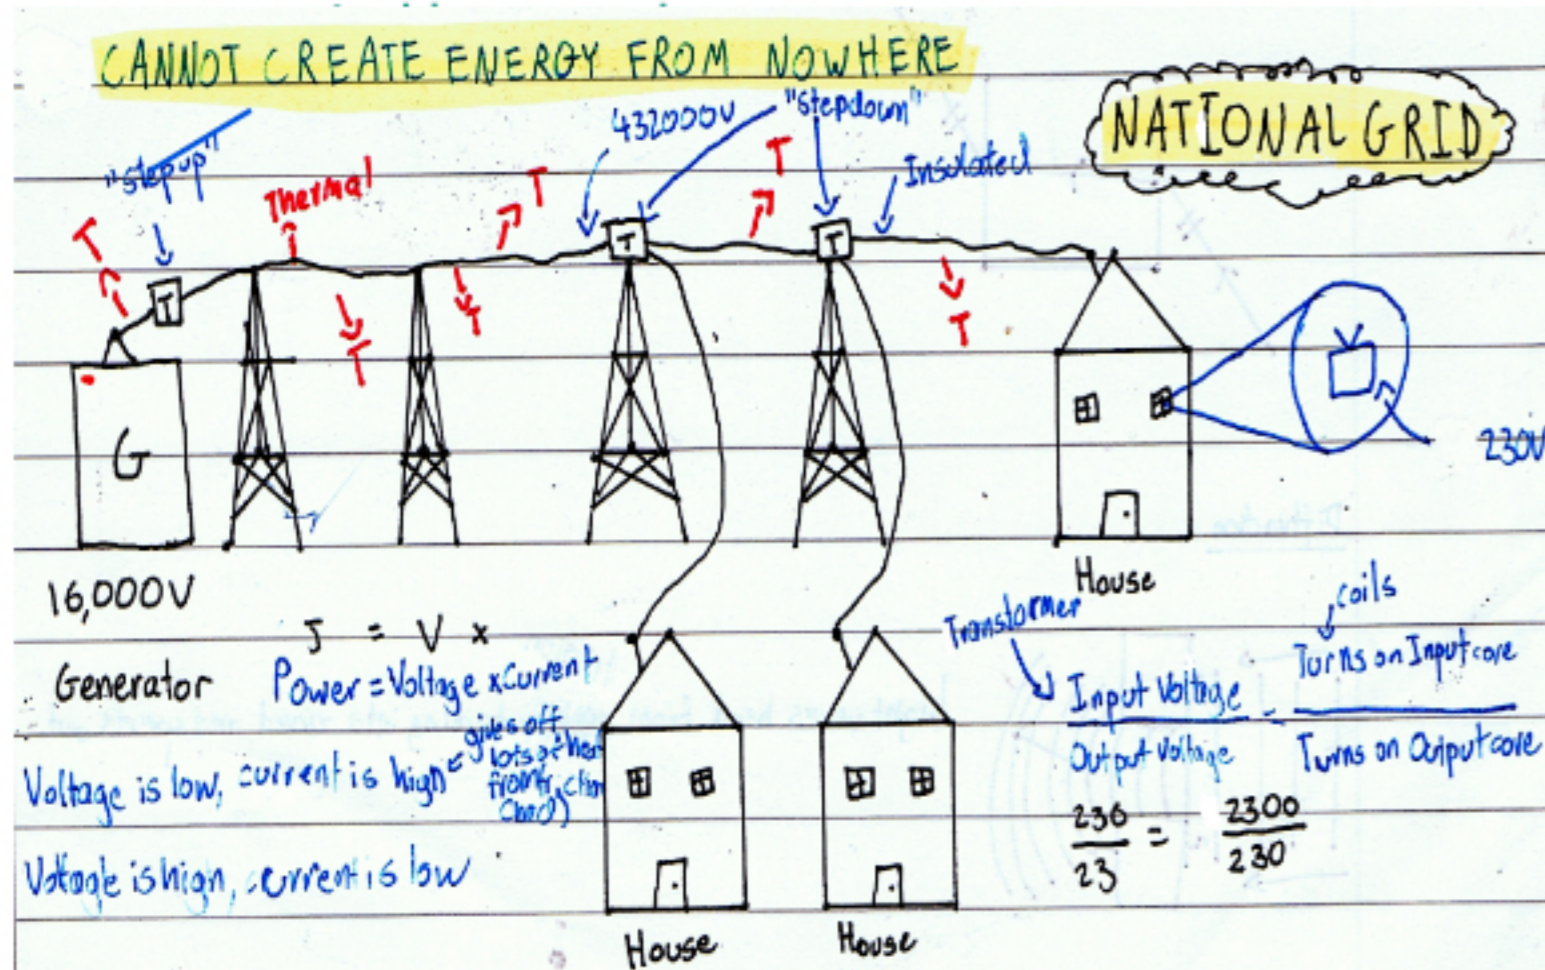 CANNOT CREATE ENERGY FROM NOWHERE
NATIONAL GRID
"step up"
432000V
"stepdown"
Insulated
Thermal
T
T
T
T
T
T
T
T
T
G
230V
16,000V
House
Generator
J = V x
Power = Voltage x Current
Voltage is low, current is high =
gives off
lots of heat
Voltage is high, current is low
House
House
Transformer
coils
Input Voltage = Turns on Input core
Output Voltage Turns on Output core
230 = 2300
23 230